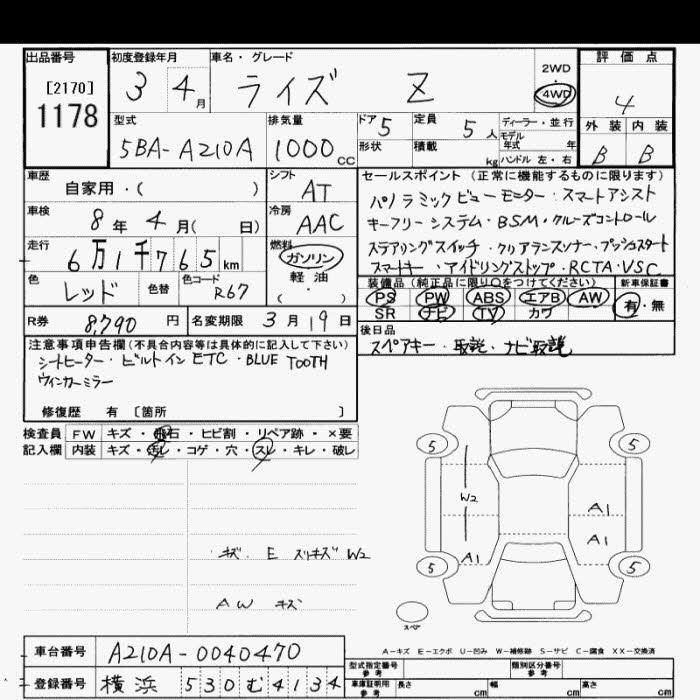 出品番号 初度登録年月 車名・グレード 評価点
[2170] 1178 3 4月 ライズ Z 2WD 4WD 4
型式 排気量 ドア 5 定員 5人 ディーラー・並行 外装 内装
5BA-A210A 1000cc 形状 積載 kg モデル年式 年 ハンドル 左・右 B B
車歴 自家用・( ) シフト AT
セールスポイント (正常に機能するものに限ります)
パノラミックビューモニター・スマートアシスト
車検 8年4月( 日) 冷房 AAC
キーフリーシステム・BSM・クルーズコントロール
走行 6万1千765km 燃料 ガソリン 軽油 ( ・ )
ステアリングスイッチ・クリアランスソナー・プッシュスタート
スマートキー・アイドリングストップ・RCTA・VSC
色 レッド 色替 色コード R67
装備品 (純正品に限り○をつけてください) 新車保証書
PS PW ABS エアB AW 有・無
SR ナビ TV カワ
R券 8,790円 名変期限 3月19日
後日品
スペアキー・取説・ナビ取説
注意事項申告欄(不具合内容等は具体的に記入して下さい)
シートヒーター・ビルトインETC・BLUE TOOTH
ウィンカーミラー
修復歴 有 〔箇所 〕
検査員 FW キズ・飛石・ヒビ割・リペア跡・×要
記入欄 内装 キズ・汚レ・コゲ・穴・スレ・キレ・破レ
5 5
W2
A1
A1 A1
5 5
キズ E スリキズ W2
AW キズ
スペア
A-キズ E-エクボ U-凹み W-補修跡 S-サビ C-腐食 XX-交換済
車台番号 A210A-0040470
型式指定番号 参考 類別区分番号 参考
登録番号 横浜 530 む 4134
車庫証明用 参考 長さ cm 幅 cm 高さ cm